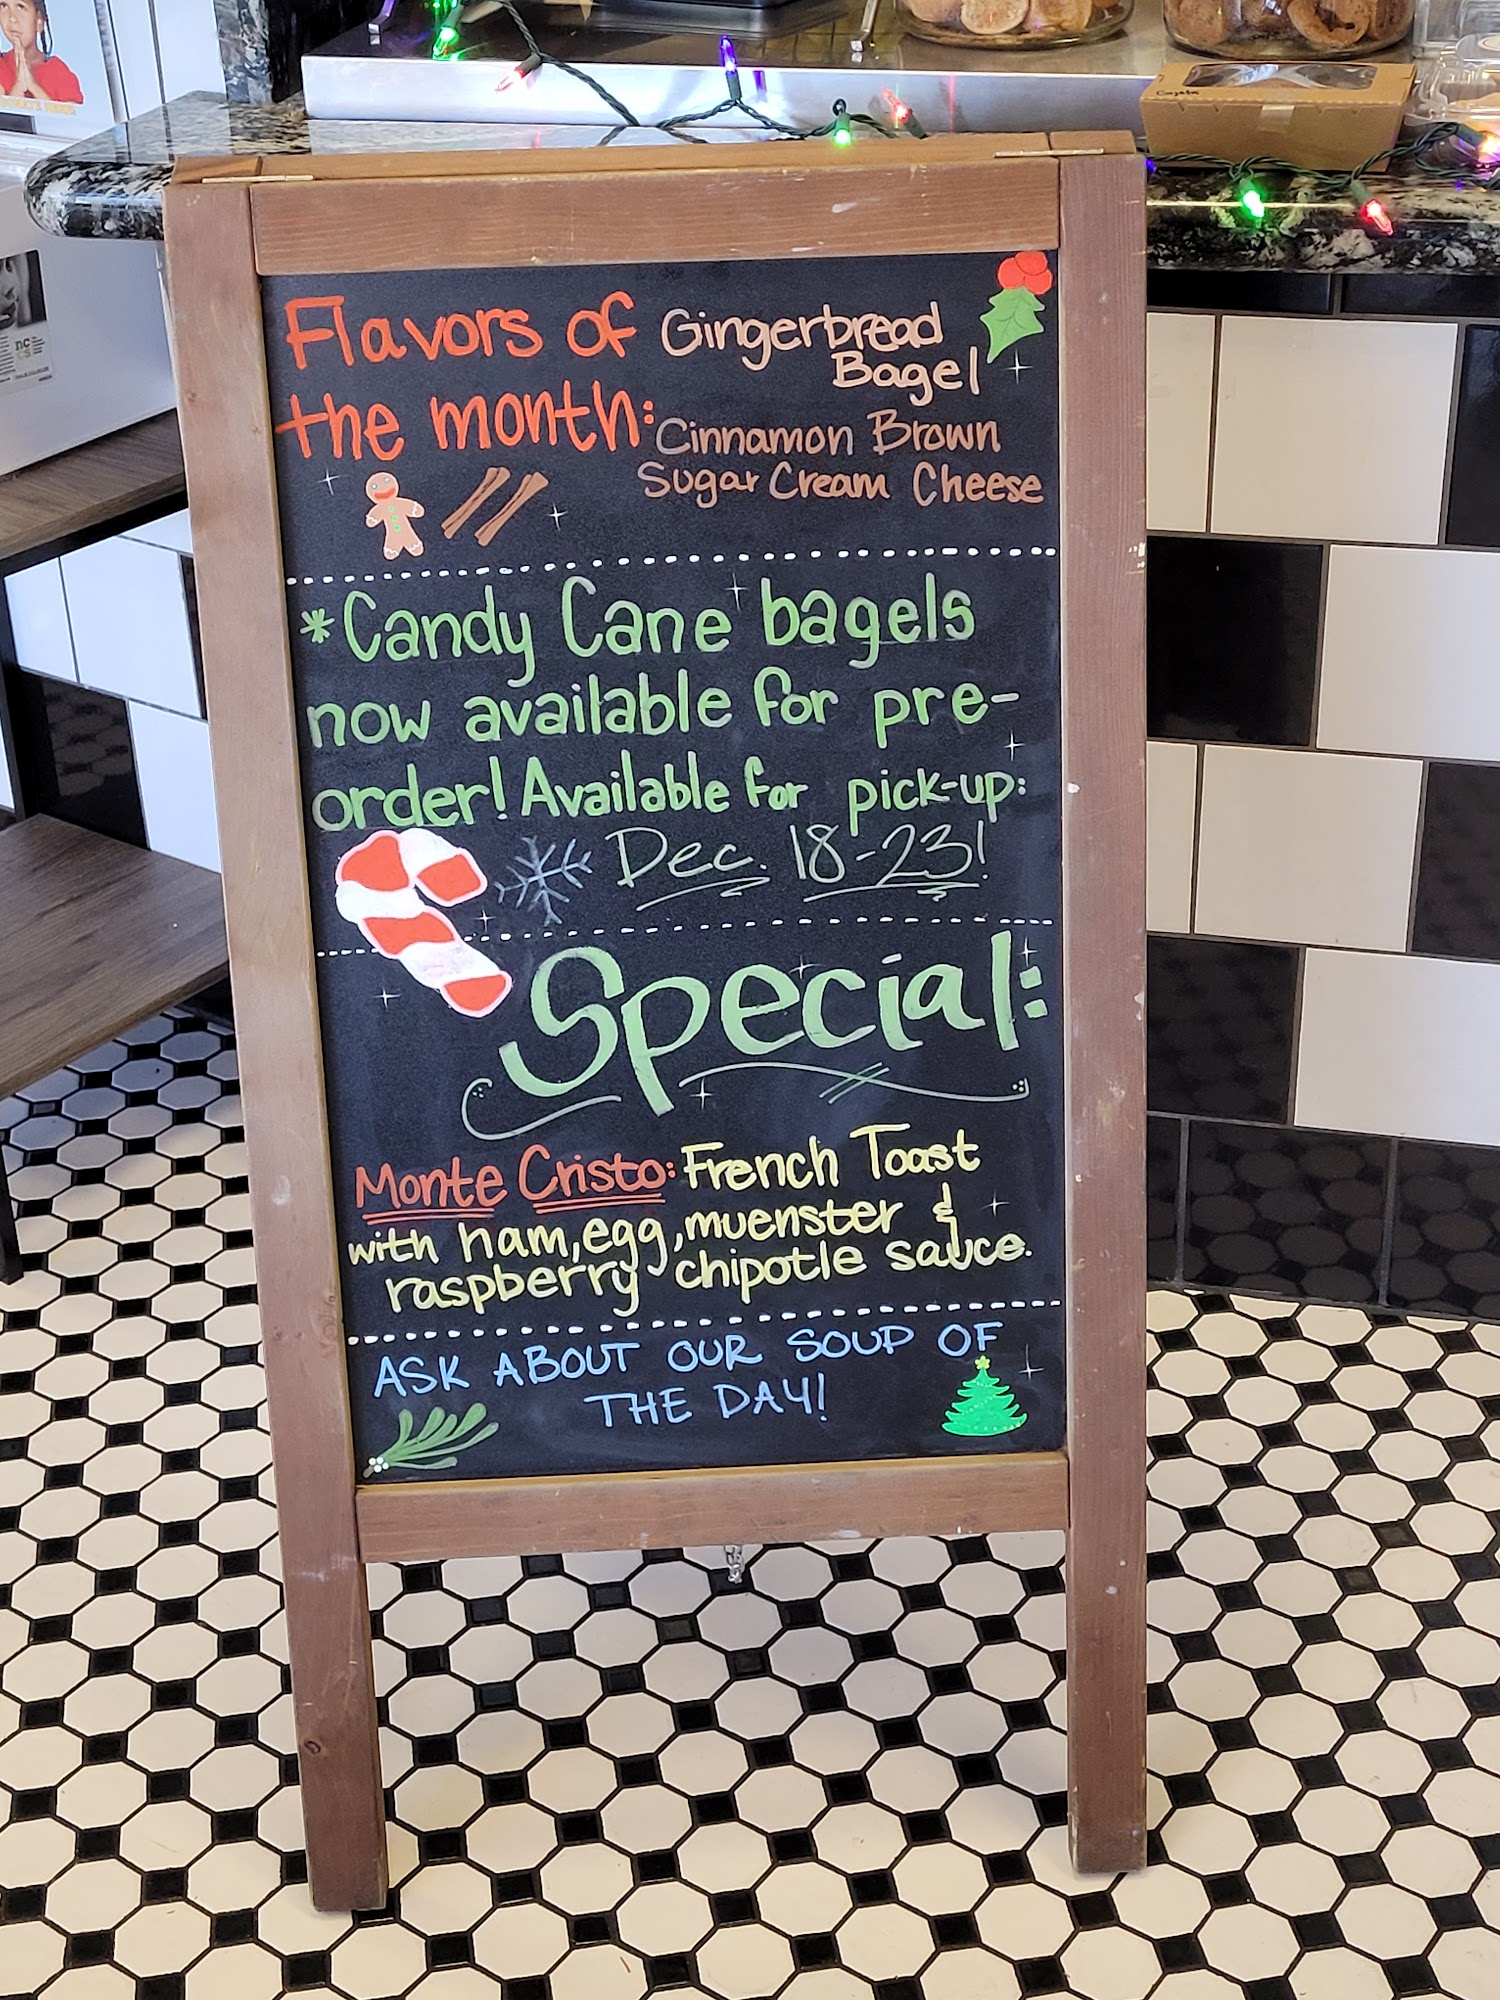 Flavors of
the month:
Gingerbread
Bagel
Cinnamon Brown
Sugar Cream Cheese
*Candy Cane bagels
now available for pre-
order! Available for pick-up:
Dec. 18-23!
Special:
Monte Cristo: French Toast
with ham, egg, muenster &
raspberry chipotle sauce.
ASK ABOUT OUR SOUP OF
THE DAY!